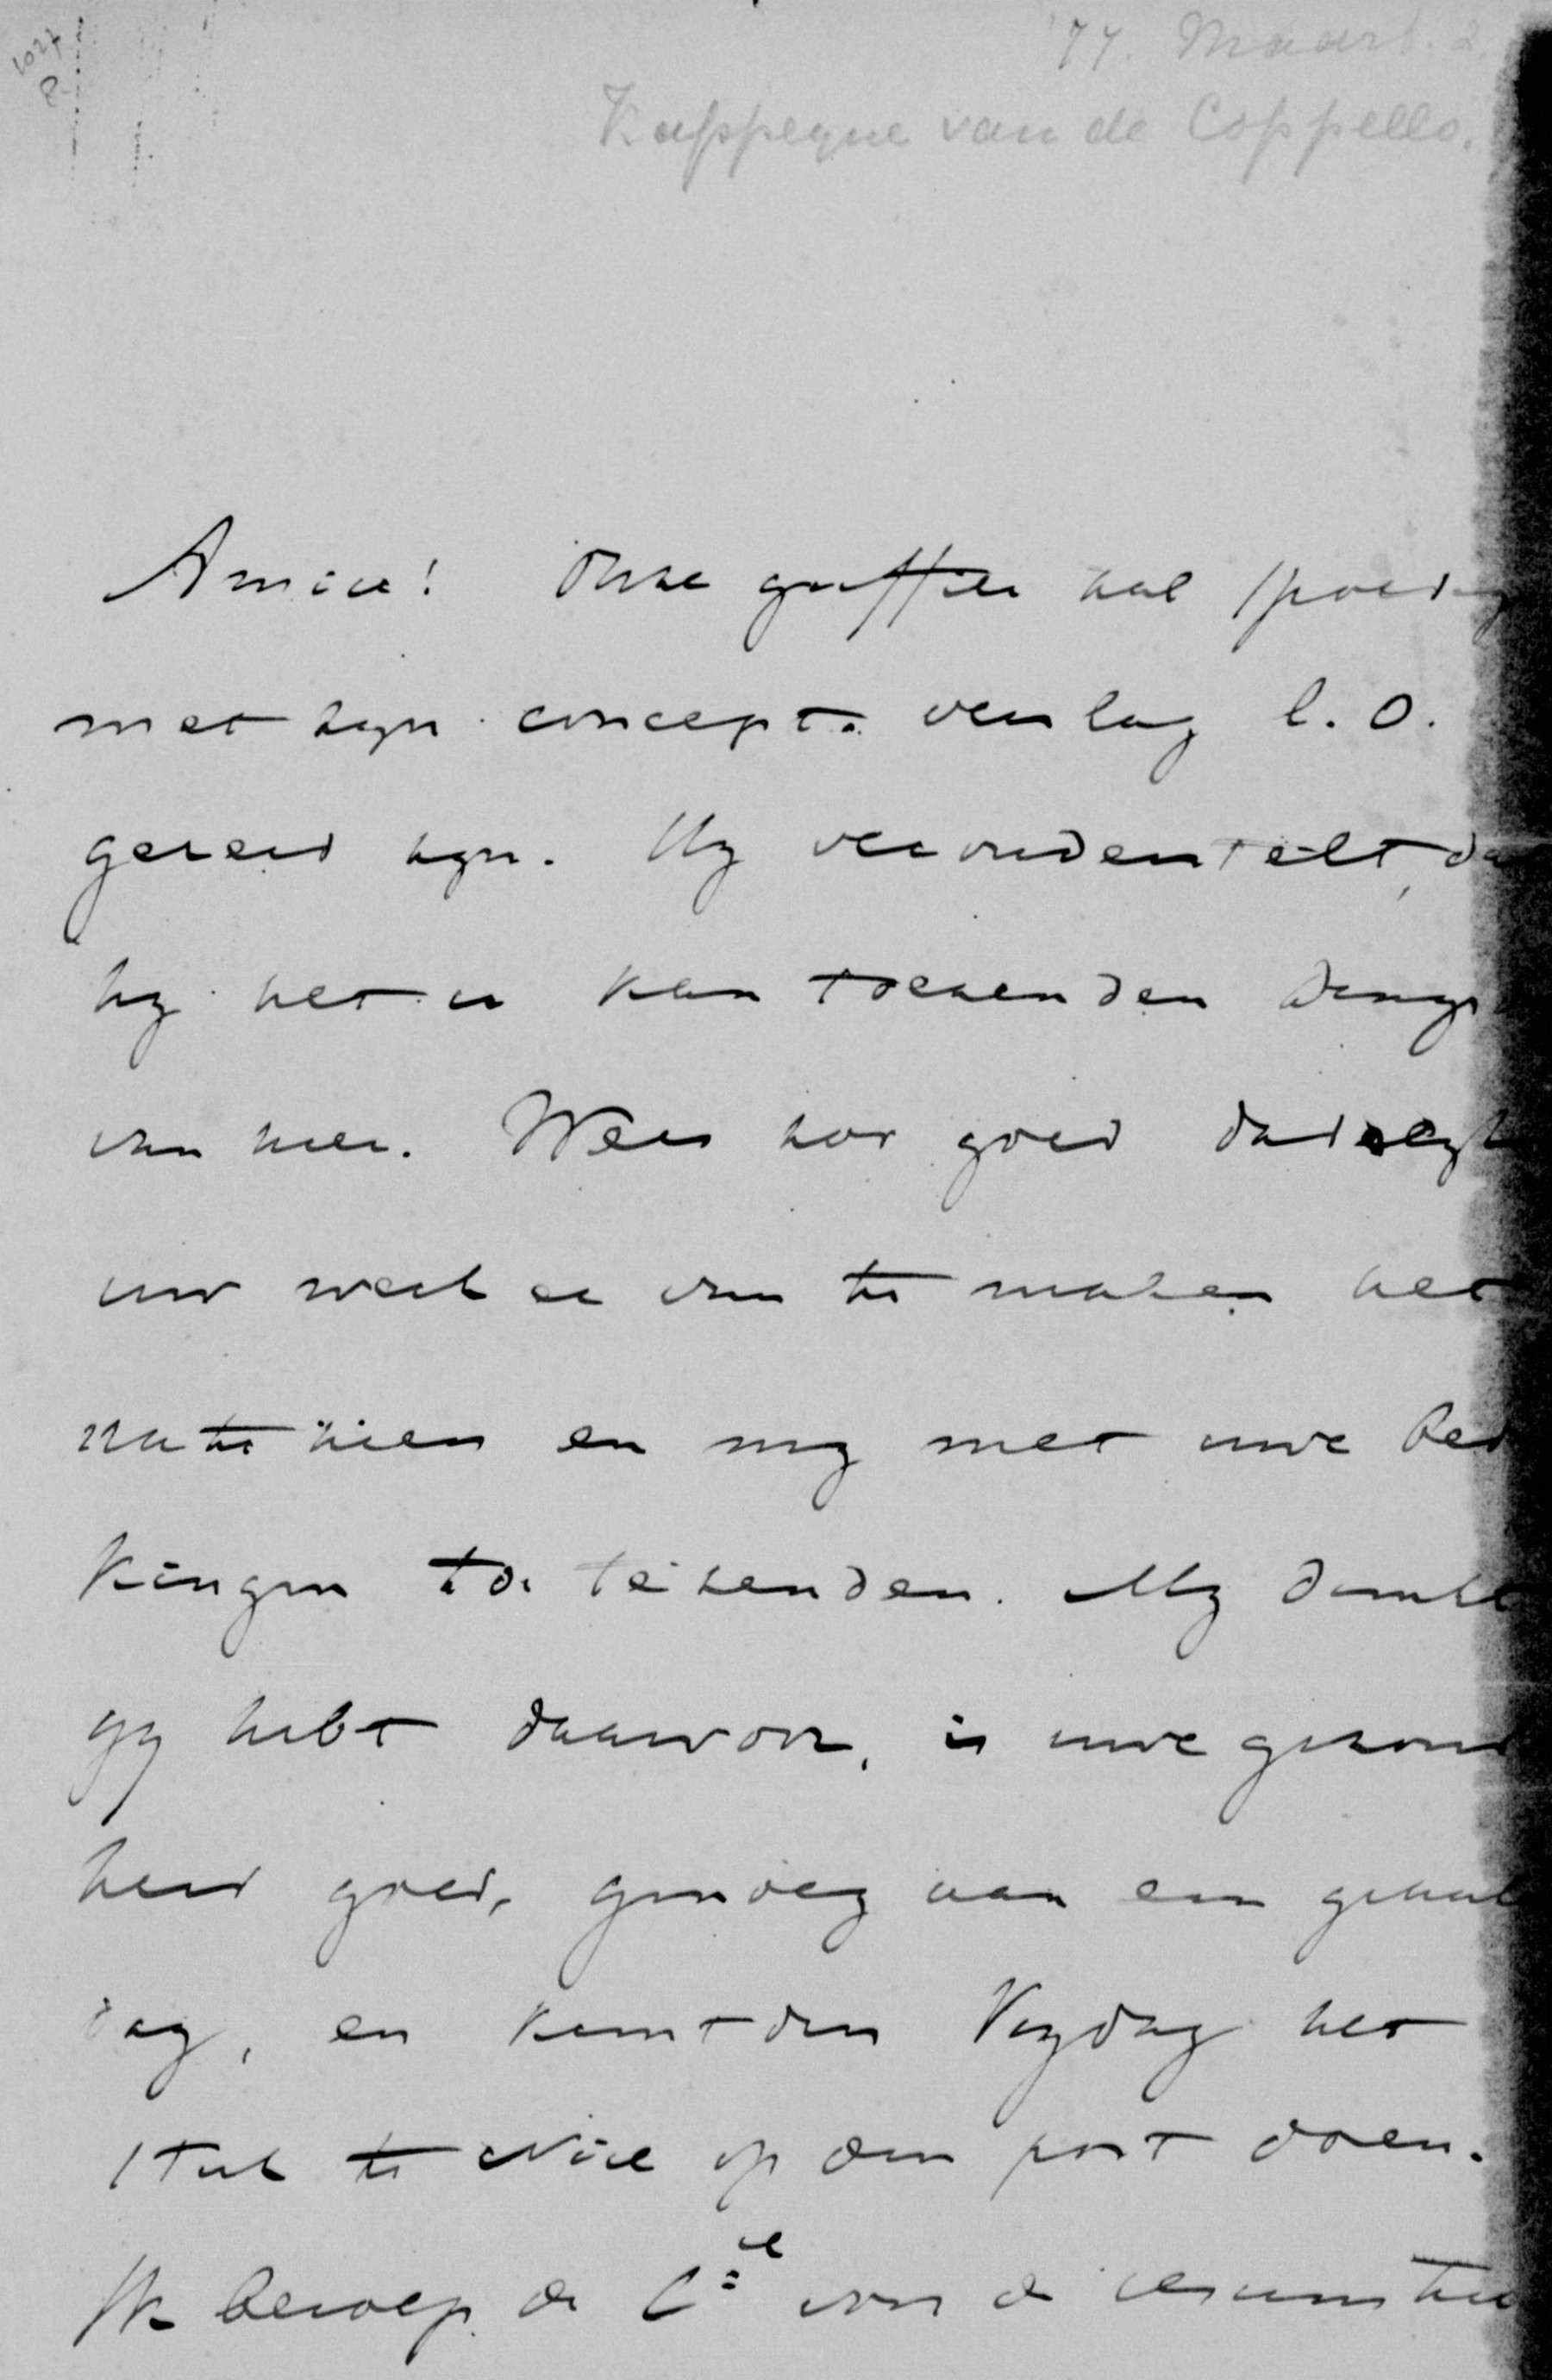 '77. Maart. 2
Kappeyne van de Coppello.
Amice! Onze griffier zal spoedig
met zyn concept verslag l. O.
gereed zyn. Hy veronderstelt, da
hy het u kan toezenden Dingsd
van hier. Wees zoo goed dadelyk
uw werk er van te maken het
na te zien en my met uwe bed
kingen toe te zenden. My dunkt
gy hebt daarvoor, is uwe gezond
heid goed, genoeg aan een geheel
dag, en kunt den Vrydag het
stuk te Nice op den post doen.
Ik beroep de C.ie van de